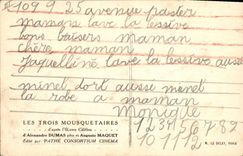 1709 9 25 avenue paster
maman lave la lessive
bons baisers maman
chère maman
Jaquelline lave la lessive aussi
minet dort aussi menet
la robe a maman
Monique
LES TROIS MOUSQUETAIRES
d'après l'Œuvre Célèbre
d'Alexandre DUMAS père et Auguste MAQUET
Edité par PATHÉ CONSORTIUM CINEMA
123456789
10 11 12
PARIS